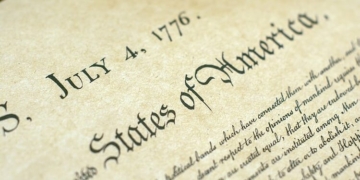 S, JULY 4, 1776.
States of America,
political bands which have connected them with another, and
decent respect to the opinions of mankind requires
are created equal, that they are endowed
are instituted among Men
to alter or to abolish it, and
Safety and Happ